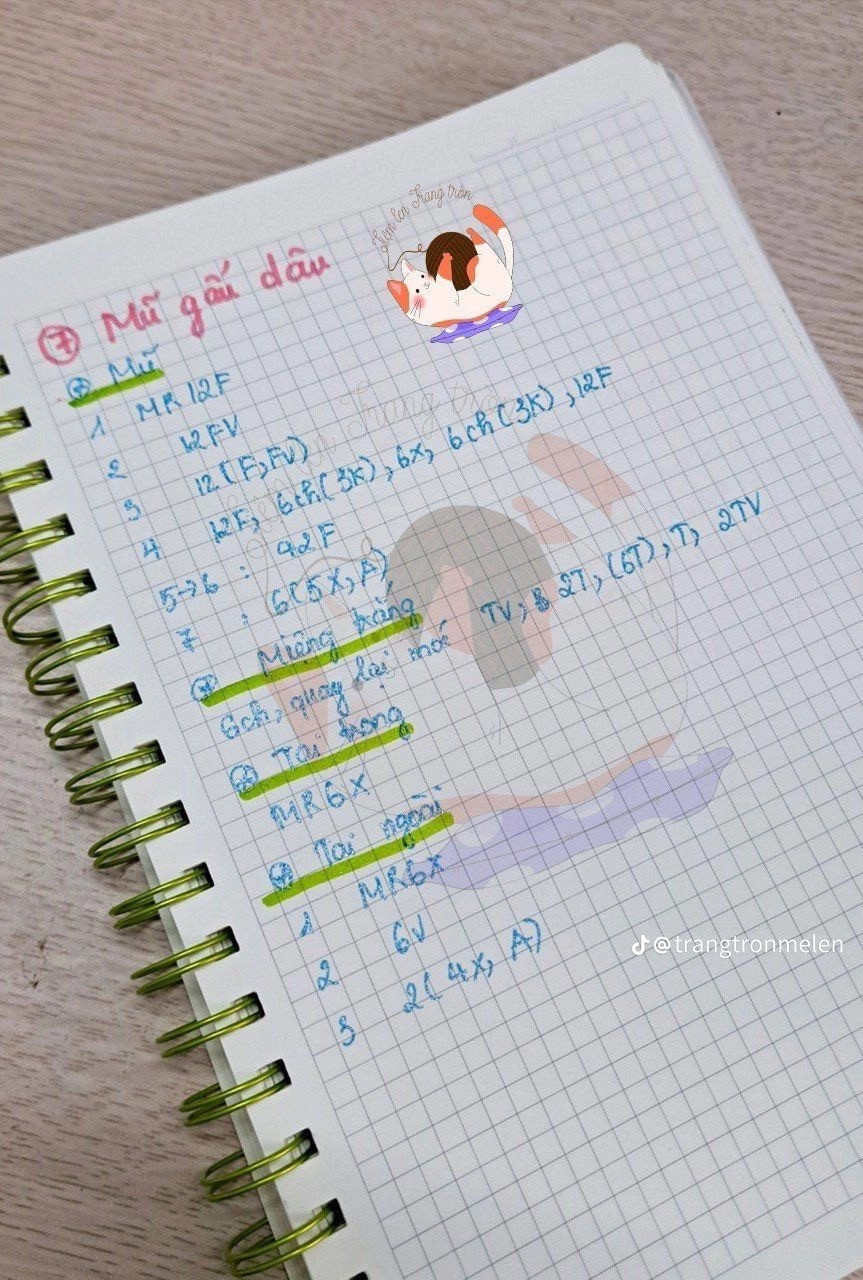 Tiệm len Trang tròn
⑦ Mũ gấu dâu
⊕ Mũ
1 MR 12F
2 12FV
3 12(F, FV)
4 12F, 6ch(3K), 6X, 6ch(3K), 12F
5→6 : 42F
7 : 6(5X, A)
⊕ Miệng trắng
6ch, quay lại mũi TV, 2T, (6T), T, 2TV
⊕ Tai trong
MR6X
⊕ Tai ngoài
1 MR6X
2 6V
3 2(4X, A)
@trangtronmelen